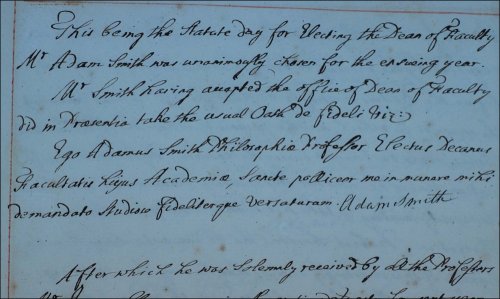 This being the Statute day for Electing the Dean of Faculty
Mr Adam Smith was unanimously chosen for the ensueing year.
Mr Smith having accepted the office of Dean of Faculty
did in Præsentia take the usual Oath de fideli viz:
Ego Adamus Smith Philosophiæ Professor Electus Decanus
Facultatis hujus Academiæ, Sancte polliceor me in munere mihi
demandato Studiose fideliterque versaturum. Adam Smith
After which he was Solemnly received by all the Professors